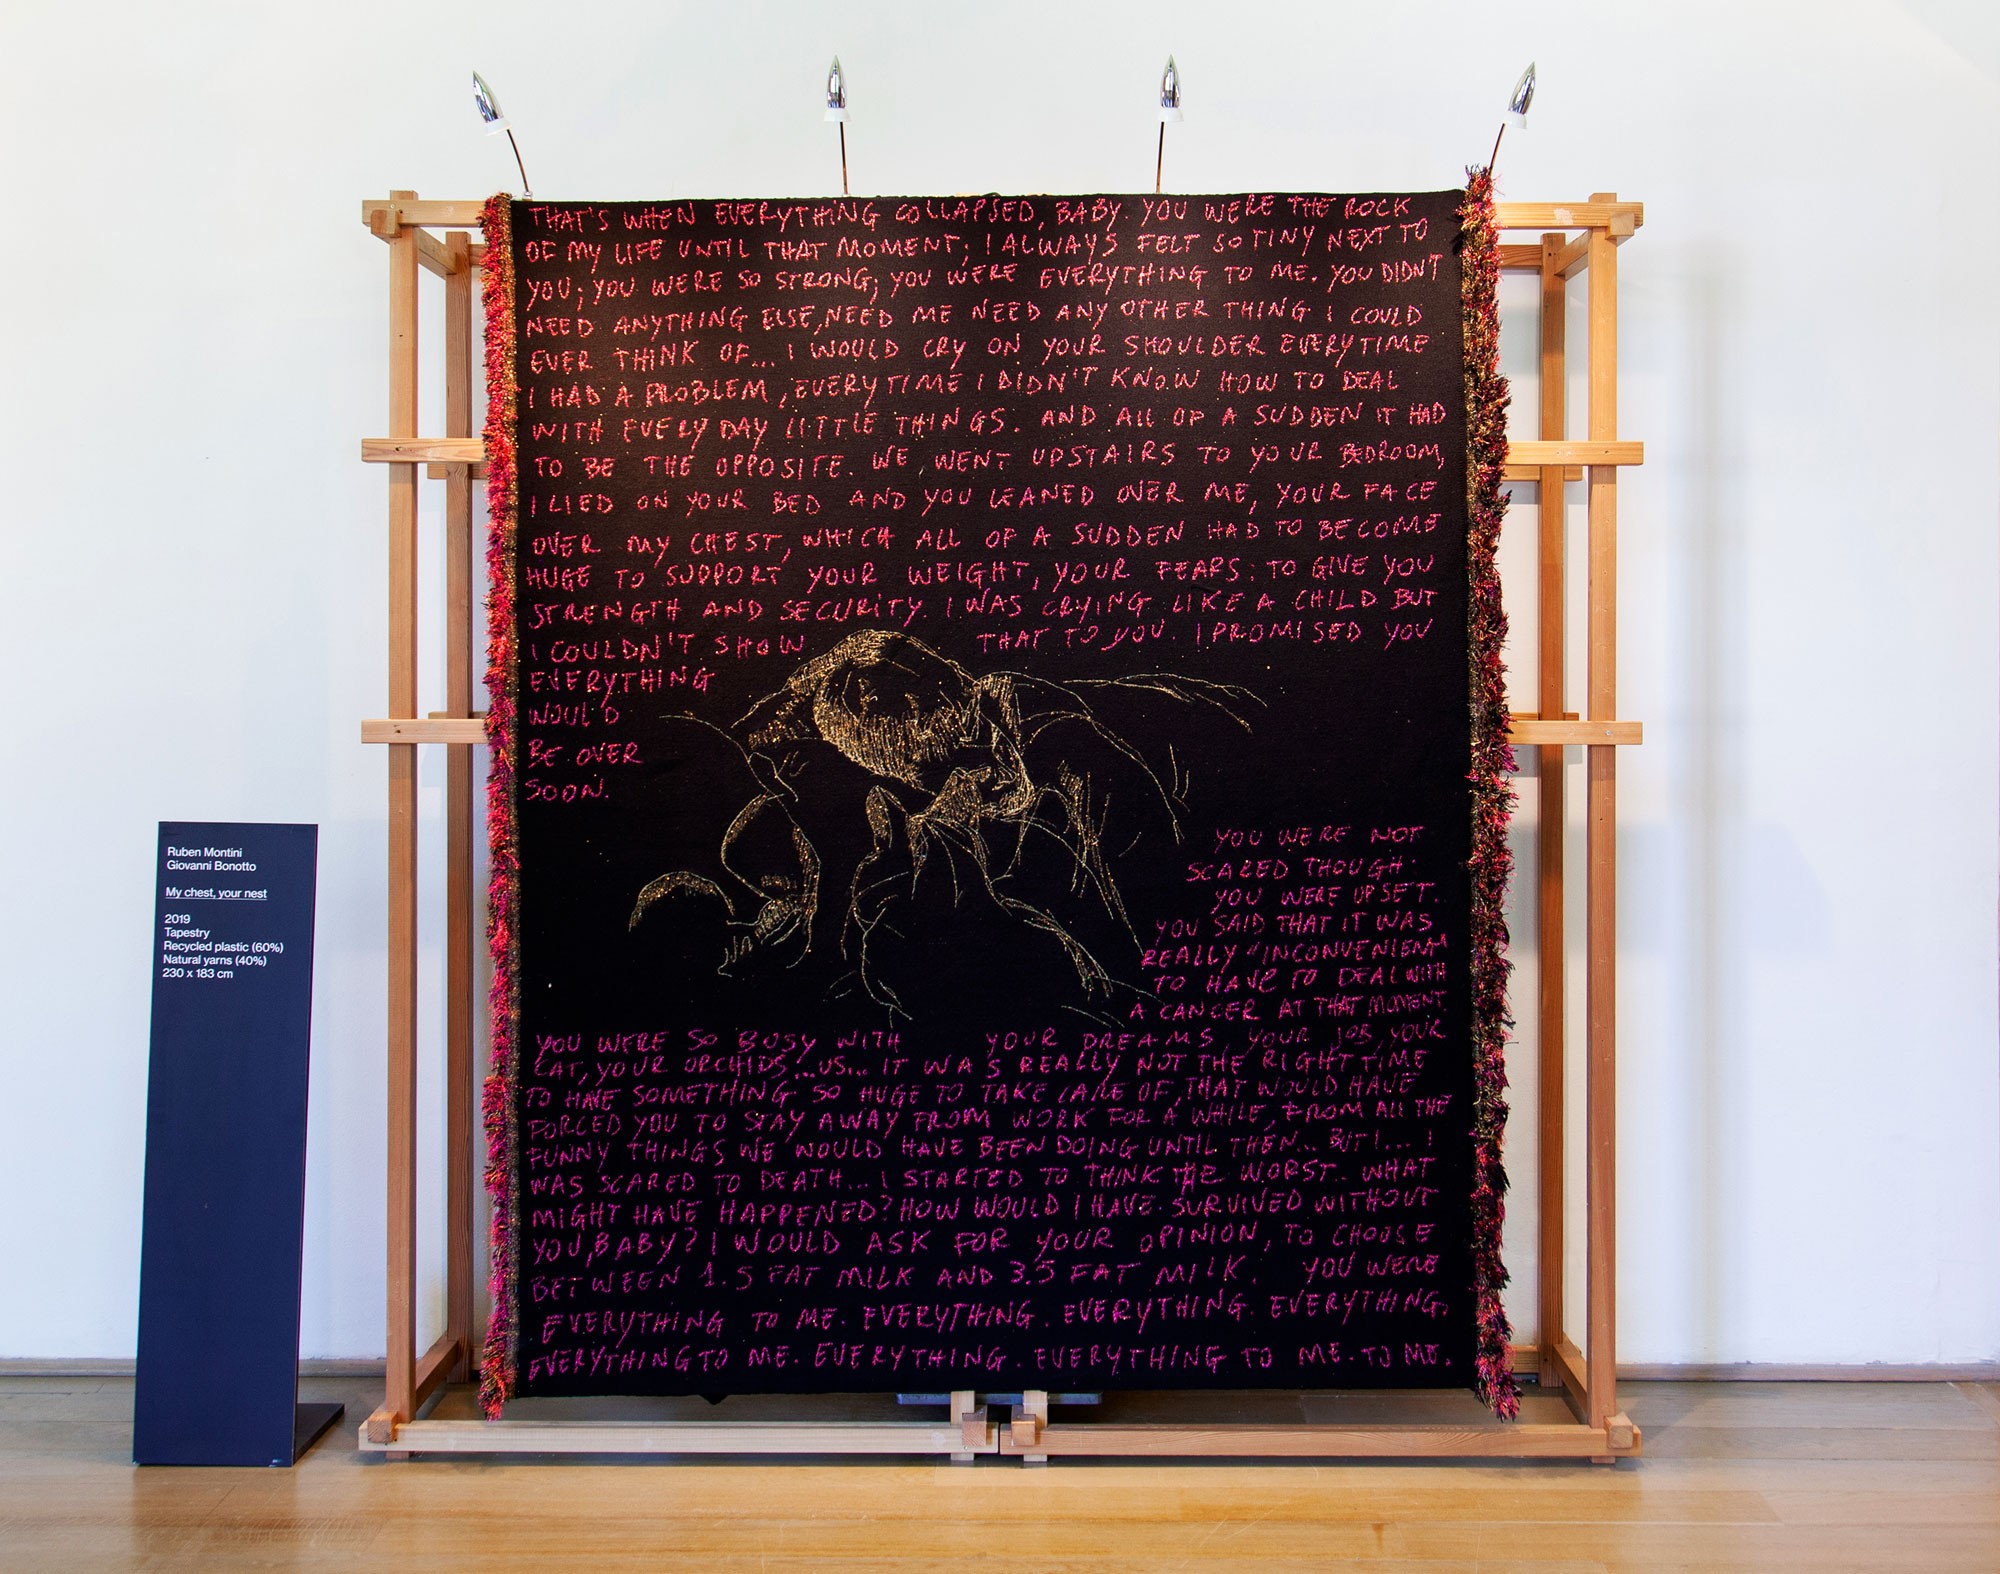 Ruben Montini
Giovanni Bonotto
My chest, your nest
2019
Tapestry
Recycled plastic (60%)
Natural yarns (40%)
230 x 183 cm
THAT'S WHEN EVERYTHING COLLAPSED, BABY. YOU WERE THE ROCK
OF MY LIFE UNTIL THAT MOMENT; I ALWAYS FELT SO TINY NEXT TO
YOU; YOU WERE SO STRONG; YOU WERE EVERYTHING TO ME. YOU DIDN'T
NEED ANYTHING ELSE, NEED ME NEED ANY OTHER THING I COULD
EVER THINK OF... I WOULD CRY ON YOUR SHOULDER EVERYTIME
I HAD A PROBLEM, EVERYTIME I DIDN'T KNOW HOW TO DEAL
WITH EVERY DAY LITTLE THINGS. AND ALL OF A SUDDEN IT HAD
TO BE THE OPPOSITE. WE WENT UPSTAIRS TO YOUR BEDROOM,
I LIED ON YOUR BED AND YOU LEANED OVER ME, YOUR FACE
OVER MY CHEST, WHICH ALL OF A SUDDEN HAD TO BECOME
HUGE TO SUPPORT YOUR WEIGHT, YOUR FEARS: TO GIVE YOU
STRENGTH AND SECURITY. I WAS CRYING LIKE A CHILD BUT
I COULDN'T SHOW THAT TO YOU. I PROMISED YOU
EVERYTHING
WOULD
BE OVER
SOON.
YOU WERE NOT
SCARED THOUGH:
YOU WERE UPSET..
YOU SAID THAT IT WAS
REALLY "INCONVENIENT"
TO HAVE TO DEAL WITH
A CANCER AT THAT MOMENT.
YOU WERE SO BUSY WITH YOUR DREAMS, YOUR JOB, YOUR
CAT, YOUR ORCHIDS...US... IT WAS REALLY NOT THE RIGHT TIME
TO HAVE SOMETHING SO HUGE TO TAKE CARE OF, THAT WOULD HAVE
FORCED YOU TO STAY AWAY FROM WORK FOR A WHILE, FROM ALL THE
FUNNY THINGS WE WOULD HAVE BEEN DOING UNTIL THEN... BUT I.... I
WAS SCARED TO DEATH... I STARTED TO THINK THE WORST.. WHAT
MIGHT HAVE HAPPENED? HOW WOULD I HAVE SURVIVED WITHOUT
YOU, BABY? I WOULD ASK FOR YOUR OPINION, TO CHOOSE
BETWEEN 1.5 FAT MILK AND 3.5 FAT MILK. YOU WERE
EVERYTHING TO ME. EVERYTHING. EVERYTHING. EVERYTHING.
EVERYTHING TO ME. EVERYTHING. EVERYTHING TO ME. TO ME.